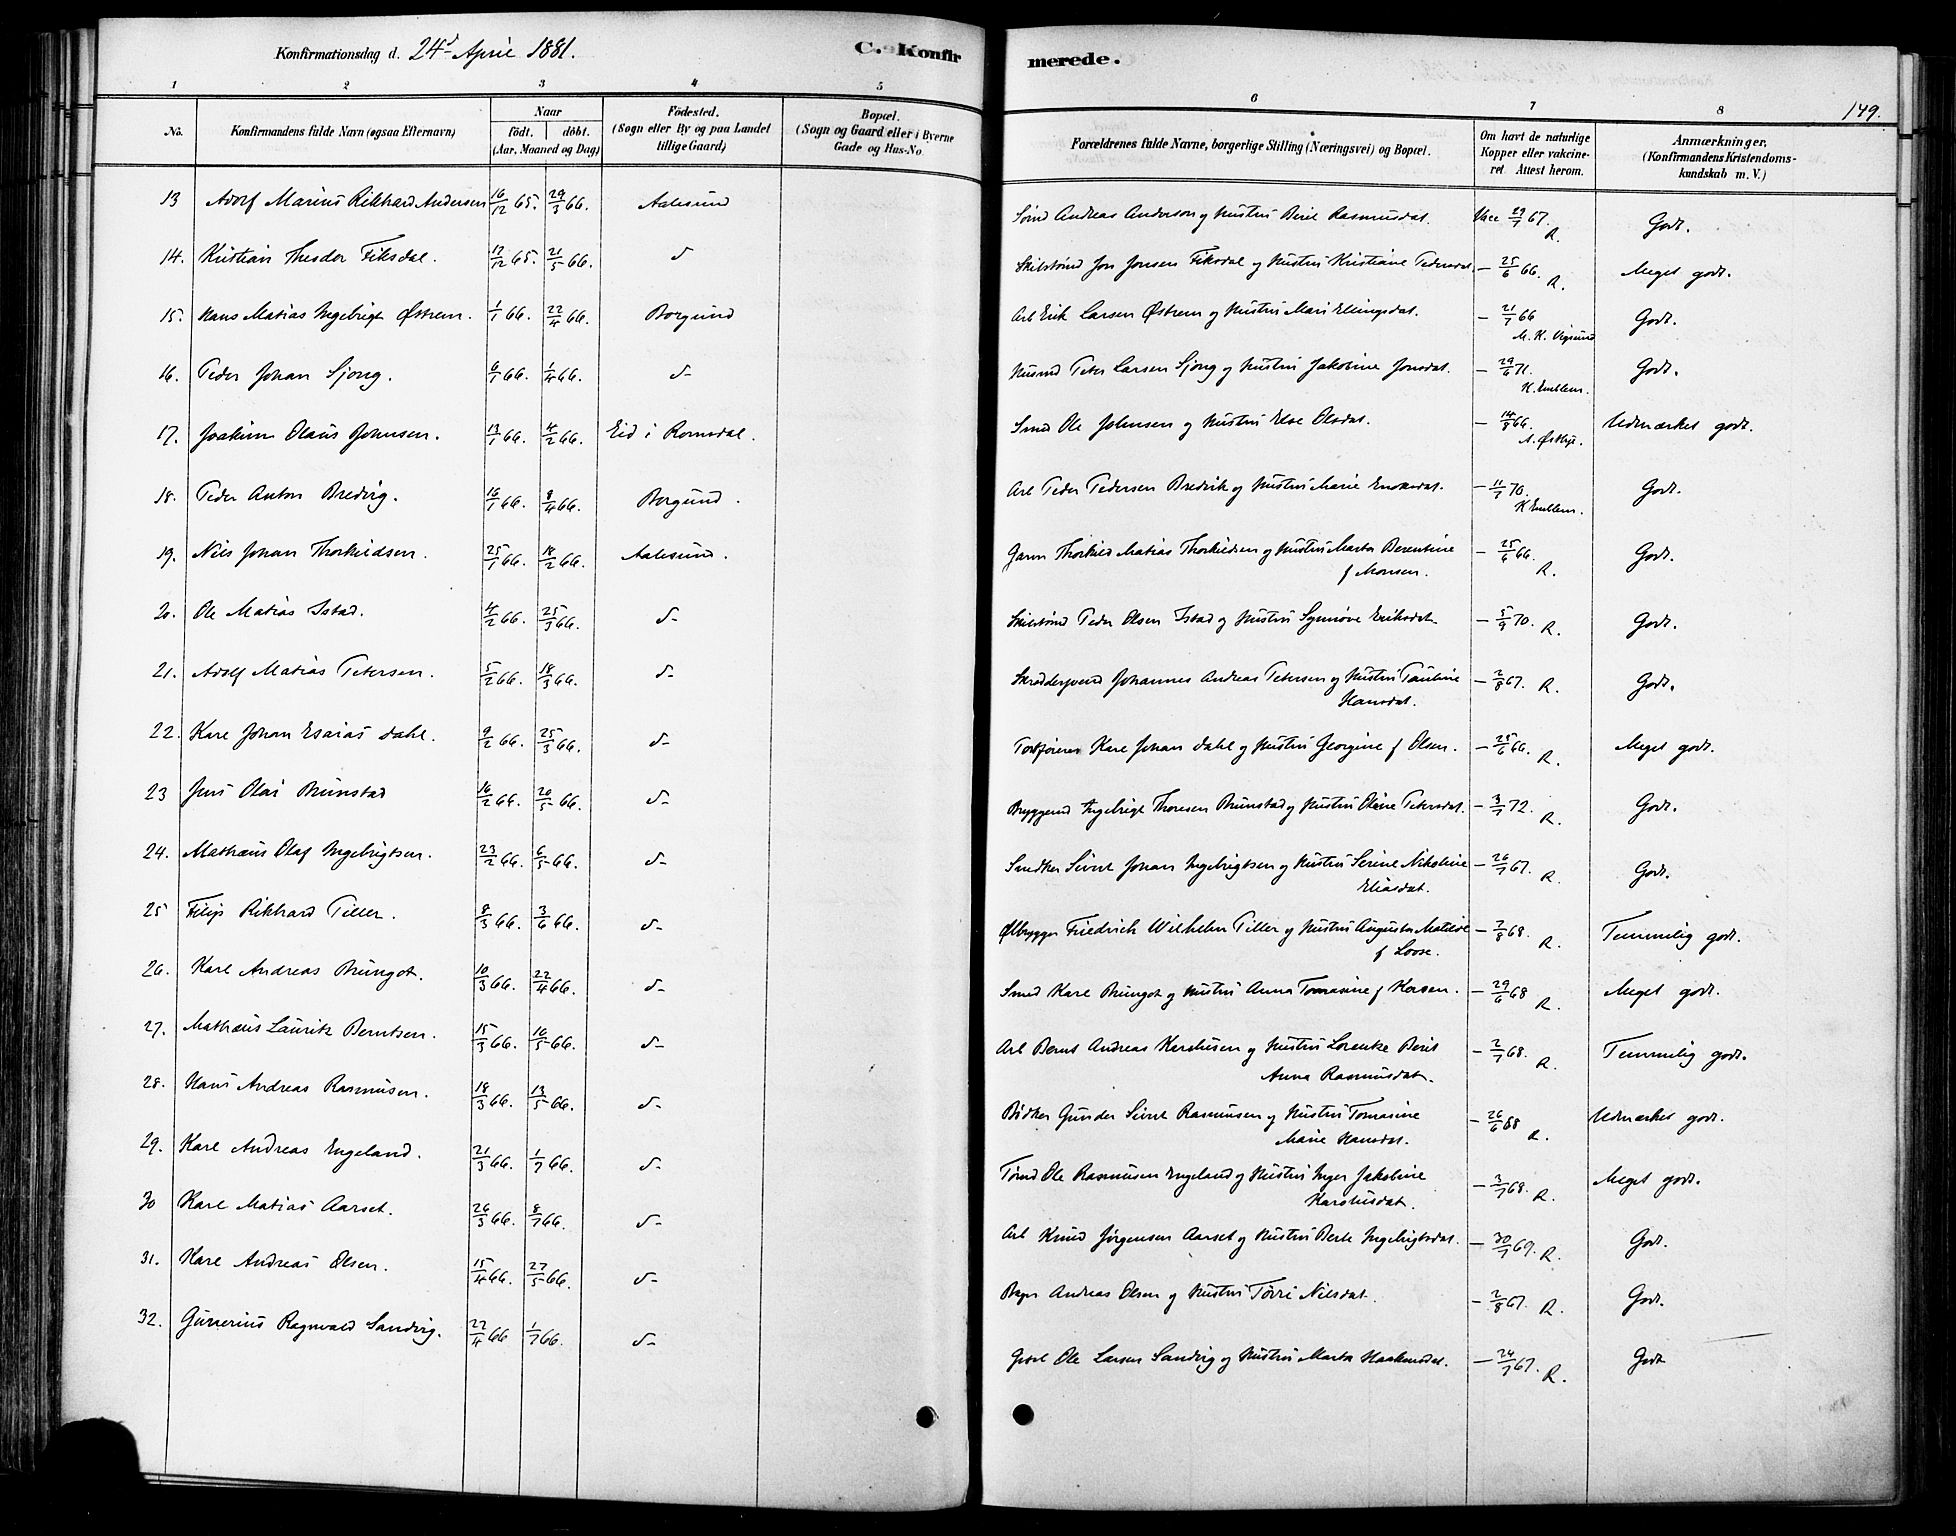 Konfirmationsdag d. 24d April 1881.
C. Konfirmerede.
149.
1 2 3 4 5 6 7 8
No. Konfirmandens fulde Navn (ogsaa Efternavn) Naar født. døbt. (Aar, Maaned og Dag) Fødested. (Sogn eller By og paa Landet tillige Gaard) Bopæl. (Sogn og Gaard eller i Byerne Gade og Hus-No. Forældrenes fulde Navne, borgerlige Stilling (Næringsvei) og Bopæl. Om havt de naturlige Kopper eller vakcineret. Attest herom. Anmærkninger. (Konfirmandens Kristendomskundskab m. V.)
13 Adolf Marius Rikhard Andersen 16/12 65. 29/3 66. Aalesund Andreas Anderson og Hustru Berit Rasmusdat. Vacc 29/7 67. R. Godt.
14. Kristian Theodor Fiksdal. 17/12 65. 21/5 66. d Jon Jonsen Fiksdal og Hustru Kristiane Pedersdat. – 25/6 66. R. Meget godt.
15. Hans Matias Ingebrigt Østrem. 1/1 66. 22/4 66. Borgund Arb Erik Larsen Østrem og Hustru Mari Ellingsdat. – 21/7 66 M. K. Vegsund Godt.
16. Peder Johan Sjong. 6/1 66. 1/4 66. d– Husmd Peter Larsen Sjong og Hustru Jakobine Jonsdat. – 29/6 71. K. Emblem. Godt.
17. Joakim Olaus Johnsen. 13/1 66. 4/2 66. Eid i Romsdal. Smed Ole Johnsen og Hustru Else Olsdat. – 14/8 66. Udmærket godt.
18. Peder Anton Bredvig. 16/1 66. 8/4 66. Borgund. Arb Peder Pedersen Bredvik og Hustru Marie Enoksdat. – 11/7 70. K Emblem. Godt.
19. Nils Johan Thorkildsen. 25/1 66. 18/2 66. Aalesund. Garver Thorkild Matias Thorkildsen og Hustru Marta Berentine f Monsen. – 25/6 66. R. Godt.
20. Ole Matias Istad. 4/2 66. 25/3 66. d– Peder Olsen Istad og Hustru Synnøve Eriksdat. – 5/9 70. R. Godt.
21. Adolf Matias Petersen. 5/2 66. 18/3 66. d– Skræddersvend Johannes Andreas Petersen og Hustru Pauline Hansdat. – 2/8 67. R. Godt.
22. Karl Johan Esaias Dahl. 9/2 66. 25/3 66. d– Karl Johan Dahl og Hustru Georgine f Olsen. – 25/6 66. R. Meget godt.
23 Jens Olai Brunstad 16/2 66. 20/5 66. d– Bryggemd Ingebrigt Thoresen Brunstad og Hustru Oline Petersdat. – 3/7 72. R. Godt.
24. Mathæus Olaf Ingebrigtsen. 23/2 66. 6/5 66. d– Snedker Sivert Johan Ingebrigtsen og Hustru Serine Nikoline Eliasdat. – 26/7 67. R. Godt.
25 Filip Rikhard Tiller. 8/3 66. 3/6 66. d– Ølbrygger Friedrich Wilhelm Tiller og Hustru Augusta Matilde f Loose. – 7/8 68. R. Temmelig godt.
26. Karl Andreas Brungot. 10/3 66. 22/4 66. d– Smed Karl Brungot og Hustru Anna Tomasine f – 29/6 68 R. Meget godt.
27. Mathæus Lauritz Berntsen. 15/3 66. 16/5 66. d– Arb Bernt Andreas Karolusen og Hustru Lorentze Berit Anna Rasmusdat. – 2/7 68. R. Temmelig godt.
28. Hans Andreas Rasmusen. 18/3 66. 13/5 66. d– Bødker Gunder Sivert Rasmusen og Hustru Tomasine Marie Hansdat. – 26/6 68 R. Udmærket godt.
29. Karl Andreas Engeland. 21/3 66. 1/7 66. d– Tømd Ole Rasmusen Engeland og Hustru Inger Jakobine Karolusdat. – 3/7 68. R. Meget godt.
30 Karl Matias Aarset. 26/3 66. 8/7 66. d– Arb Knud Jørgensen Aarset og Hustru Berte Ingebrigtsdat. – 30/7 69. R. Godt.
31. Karl Andreas Olsen. 15/4 66. 27/5 66. d– Bager Andreas Olsen og Hustru Nilsdat. – 2/8 67. R. Godt.
32. Ragnvald Sandvig. 22/4 66 1/7 66. d– Ole Larsen Sandvig og Hustru Marta Haakonsdat. – 24/7 67. R. Godt